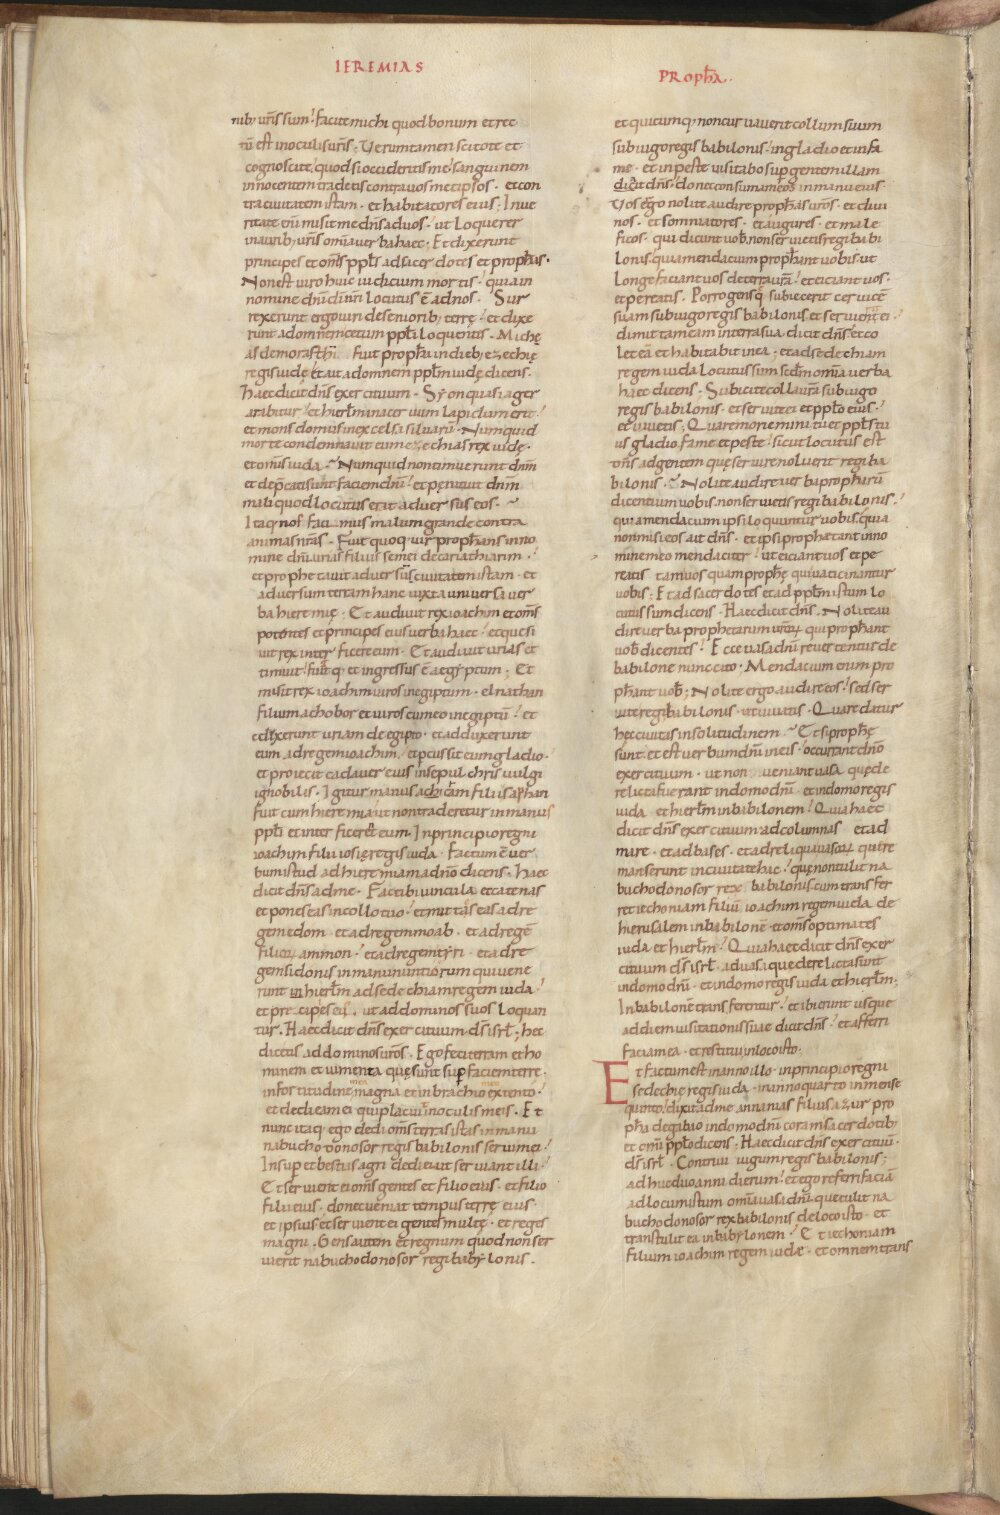 IEREMIAS
PROPHA..
nib; uris sum; facite michi quod bonum et rec
tū est in oculis uris; Verumtamen scitote et
cognoscite, quod si occideritis me, sanguinem
innocentem tradetis contra uos met ipsos. et con
tra ciuitatem istam. et habitatores eius; In ue
ritate eni misit me dns ad uos. ut loquerer
in aurib; uris omia uerba haec. Et dixerunt
principes et oms ppls ad sacerdotes et prophas.
Non est uiro huic iudicium mortis. quia in
nomine dni di nri locutus ē ad nos. Sur
rexerunt ergo uiri de seniorib; terrę. et dixe
runt ad omnem cetum ppli loquentes. Michę
as demorasthi fuit propha in dieb; ezechię
regis iudę et ait ad omnem pplm iudę dicens.
Haec dicit dns exercituum. Syon quasi ager
arabitur. et hierlm in aceruum lapidum erit.
et mons domus in excelsa siluarū. Numquid
morte condemnauit eum ezechias rex iudę.
et omis iuda. Numquid non timuerunt dnm
et depcati sunt faciem dni. et penituit dnm
mali quod locutus erat aduersus eos.
Itaq; nos facimus malum grande contra
animas nras. Fuit quoq; uir prophans in no
mine dni urias filius semei de cariathiarim.
et prophetauit aduersus ciuitatem istam. et
aduersum terram hanc iuxta uniuersa uer
ba hieremię. Et audiuit rex ioachim et oms
potentes et principes eius uerba haec. et quesi
uit rex interficere eum. Et audiuit urias et
timuit. fugitq; et ingressus ē aegyptum. Et
misit rex ioachim uiros in egiptum. elnathan
filium achobor et uiros cum eo in egiptū. et
eduxerunt uriam de egipto. et adduxerunt
eum ad regem ioachim. et pcussit eum gladio.
et proiecit cadauer eius in sepulchris uulgi
ignobilis. Igitur manus achicam filii saphan
fuit cum hieremia ut non traderetur in manus
ppli et interficeret eum. In principio regni
ioachim filii iosię regis iuda. Factum ē uer
bum istud ad hieremiam a dno dicens. Haec
dicit dns ad me. Fac tibi uincula et catenas
et pones eas in collo tuo. et mittas eas ad re
gem edom. et ad regem moab. et ad regē
filiorum ammon. et ad regem tyri. et ad re
gem sidonis in manu nuntiorum qui uene
runt in hierlm ad sedechiam regem iuda.
et precipies eis. ut ad dominos suos loquan
tur. Haec dicit dns exercituum ds isrl. hęc
dicetis ad dominos uros. Ego feci terram et ho
minem et iumenta quę sunt sup faciem terre.
in fortitudine mea magna et in brachio meo extento.
et dedi eam ei qui placuit in oculis meis. Et
nunc itaq; ego dedi oms terras istas in manu
nabuchodonosor regis babilonis serui mei.
Insup et bestias agri dedi ei ut seruiant illi.
Et seruient ei oms gentes et filio eius. et filio
filii eius. donec ueniat tempus terrę eius.
et ipsius et seruient ei gentes multę. et reges
magni. Gens autem et regnum quod non ser
uierit nabuchodonosor regi babylonis.
et quicumq; non curuauerit collum suum
sub iugo regis babilonis. in gladio et in fa
me. et in peste uisitabo sup gentem illam
dicit dns. donec consumam eos in manu eius.
Vos ergo nolite audire prophas uros. et diui
nos. et somniatores. et augures. et male
ficos. qui dicunt uob. non seruietis regi babi
lonis. quia mendacium prophant uobis. ut
longe faciant uos de terra ura. et eiciant uos.
et pereatis. Porro gens q subiecerit ceruicē
suam sub iugo regis babilonis. et seruierit ei.
dimittam eam in terra sua. dicit dns. et co
let eā et habitabit in ea. et ad sedechiam
regem iuda locutus sum secdm omia uerba
haec dicens. Subicite colla ura sub iugo
regis babilonis. et seruite ei et pplo eius.
et uiuetis. Quare moriemini tu et ppls tu
us gladio. fame et peste. sicut locutus est
dns ad gentem quę seruire noluerit regi ba
bilonis. Nolite audire uerba propharū
dicentium uobis. non seruietis regi babilonis.
quia mendacium ipsi loquuntur uobis. quia
non misi eos ait dns. et ipsi prophetant in no
mine meo mendaciter. ut eiciant uos et pe
reatis tam uos quam prophę qui uaticinantur
uobis. Et ad sacerdotes et ad pplm istum lo
cutus sum dicens. Haec dicit dns. Nolite au
dire uerba prophetarum urorum qui prophant
uob dicentes. Ecce uasa dni reuertentur de
babilone nunc cito. Mendacium enim pro
phant uob; Nolite ergo audire eos. sed ser
uite regi babilonis. ut uiuatis. Quare datur
hęc ciuitas in solitudinem. Et si prophę
sunt. et est uerbum dni in eis. occurrant dno
exercituum. ut non ueniant uasa quę de
relicta fuerant in domo dni. et in domo regis
iuda. et hierlm in babilonem. Quia haec
dicit dns exercituum ad columnas et ad
mare. et ad bases. et ad reliqua uasorum que re
manserunt in ciuitate hac. quę non tulit na
buchodonosor rex babilonis cum transfer
ret iechoniam filiū ioachim regem iuda de
hierusalem in babilonē. et oms optimates
iuda et hierlm. Quia haec dicit dns exer
cituum ds isrl. ad uasa que derelicta sunt
in domo dni. et in domo regis iuda et hierlm;
In babilonē transferentur. et ibi erunt usque
ad diem uisitationis suae dicit dns. et afferri
faciam ea. et restitui in loco isto.
Et factum est in anno illo. in principio regni
sedechię regis iuda. in anno quarto in mense
quinto. dixit ad me annanias filius azur pro
pha de gabao in domo dni coram sacerdotib;
et omi pplo dicens. Haec dicit dns exercituū.
ds isrl. Contriui iugum regis babilonis;
adhuc duo anni dierum. et ego referri faciā
ad locum istum omia uasa dni. que tulit na
buchodonosor rex babilonis de loco isto. et
transtulit ea in babylonem. Et iechoniam
filium ioachim regem iudę. et omnem trans